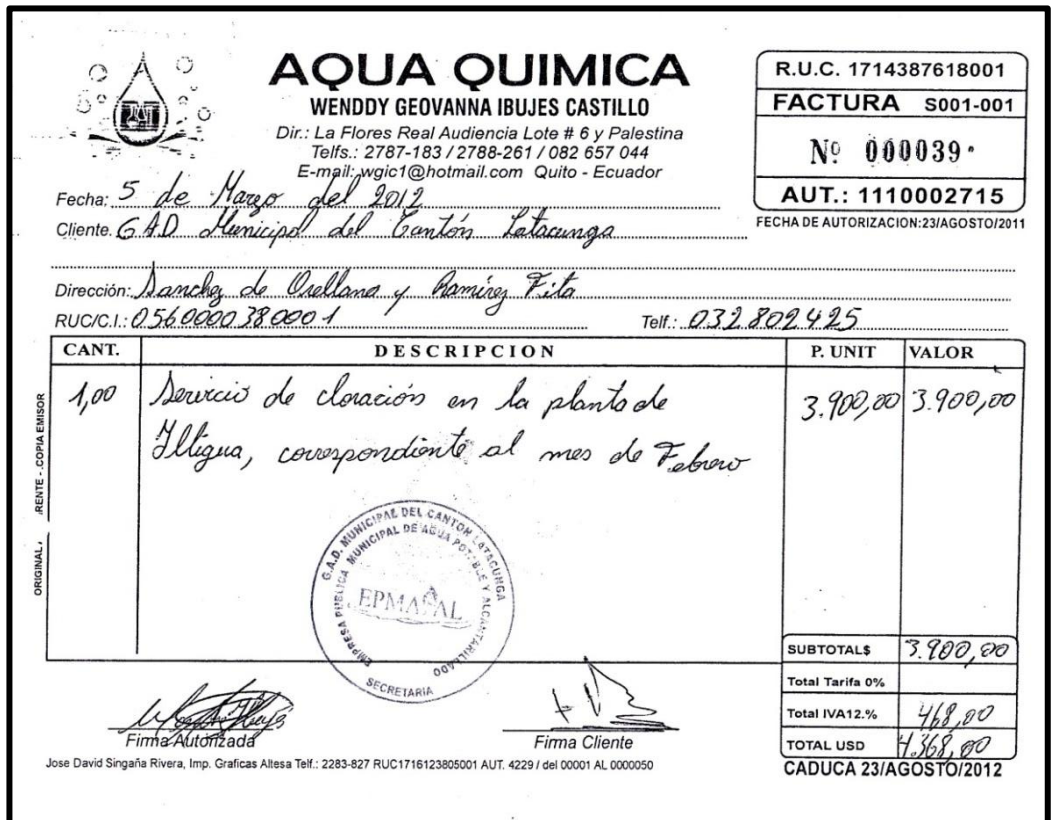 AQUA QUIMICA
WENDDY GEOVANNA IBUJES CASTILLO
Dir.: La Flores Real Audiencia Lote # 6 y Palestina
Telfs.: 2787-183 / 2788-261 / 082 657 044
E-mail: wgic1@hotmail.com Quito - Ecuador
R.U.C. 1714387618001
FACTURA S001-001
Nº 000039
AUT.: 1110002715
FECHA DE AUTORIZACION:23/AGOSTO/2011
Fecha: 5 de Marzo del 2012
Cliente. G.A.D Municipal del Cantón Latacunga
Dirección: Sanchez de Orellana y Ramírez Fita
RUC/C.I.: 0560000380001 Telf.: 032802425
CANT. DESCRIPCION P. UNIT VALOR
1,00 Servicio de cloración en la planta de 3.900,00 3.900,00
Illigua, correspondiente al mes de Febrero
ORIGINAL, RENTE - .COPIA EMISOR
G.A.D. MUNICIPAL DEL CANTON LATACUNGA
EMPRESA PUBLICA MUNICIPAL DE AGUA POTABLE Y ALCANTARILLADO
EPMAPAL
SECRETARIA
SUBTOTAL$ 3.900,00
Total Tarifa 0%
Total IVA12.% 468,00
TOTAL USD 4.368,00
Firma Autorizada Firma Cliente
Jose David Singaña Rivera, Imp. Graficas Altesa Telf.: 2283-827 RUC1716123805001 AUT. 4229 / del 00001 AL 0000050
CADUCA 23/AGOSTO/2012